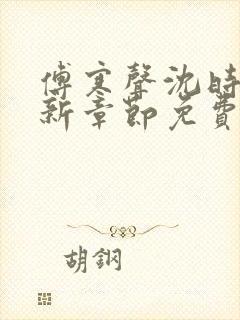 傅寒聲沈時
新章節免費
胡鋼